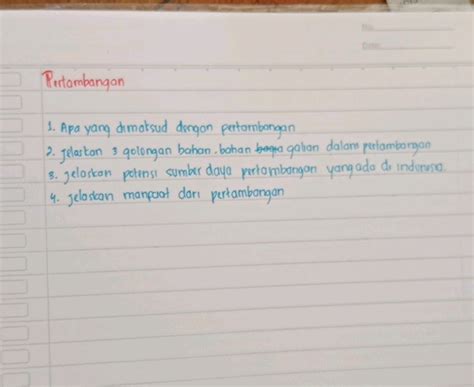 Pertambangan
1. Apa yang dimaksud dengan pertambangan
2. Jelaskan 3 golongan bahan-bahan galian dalam pertambangan
3. Jelaskan potensi sumber daya pertambangan yang ada di indonesia.
4. Jelaskan manpaat dari pertambangan